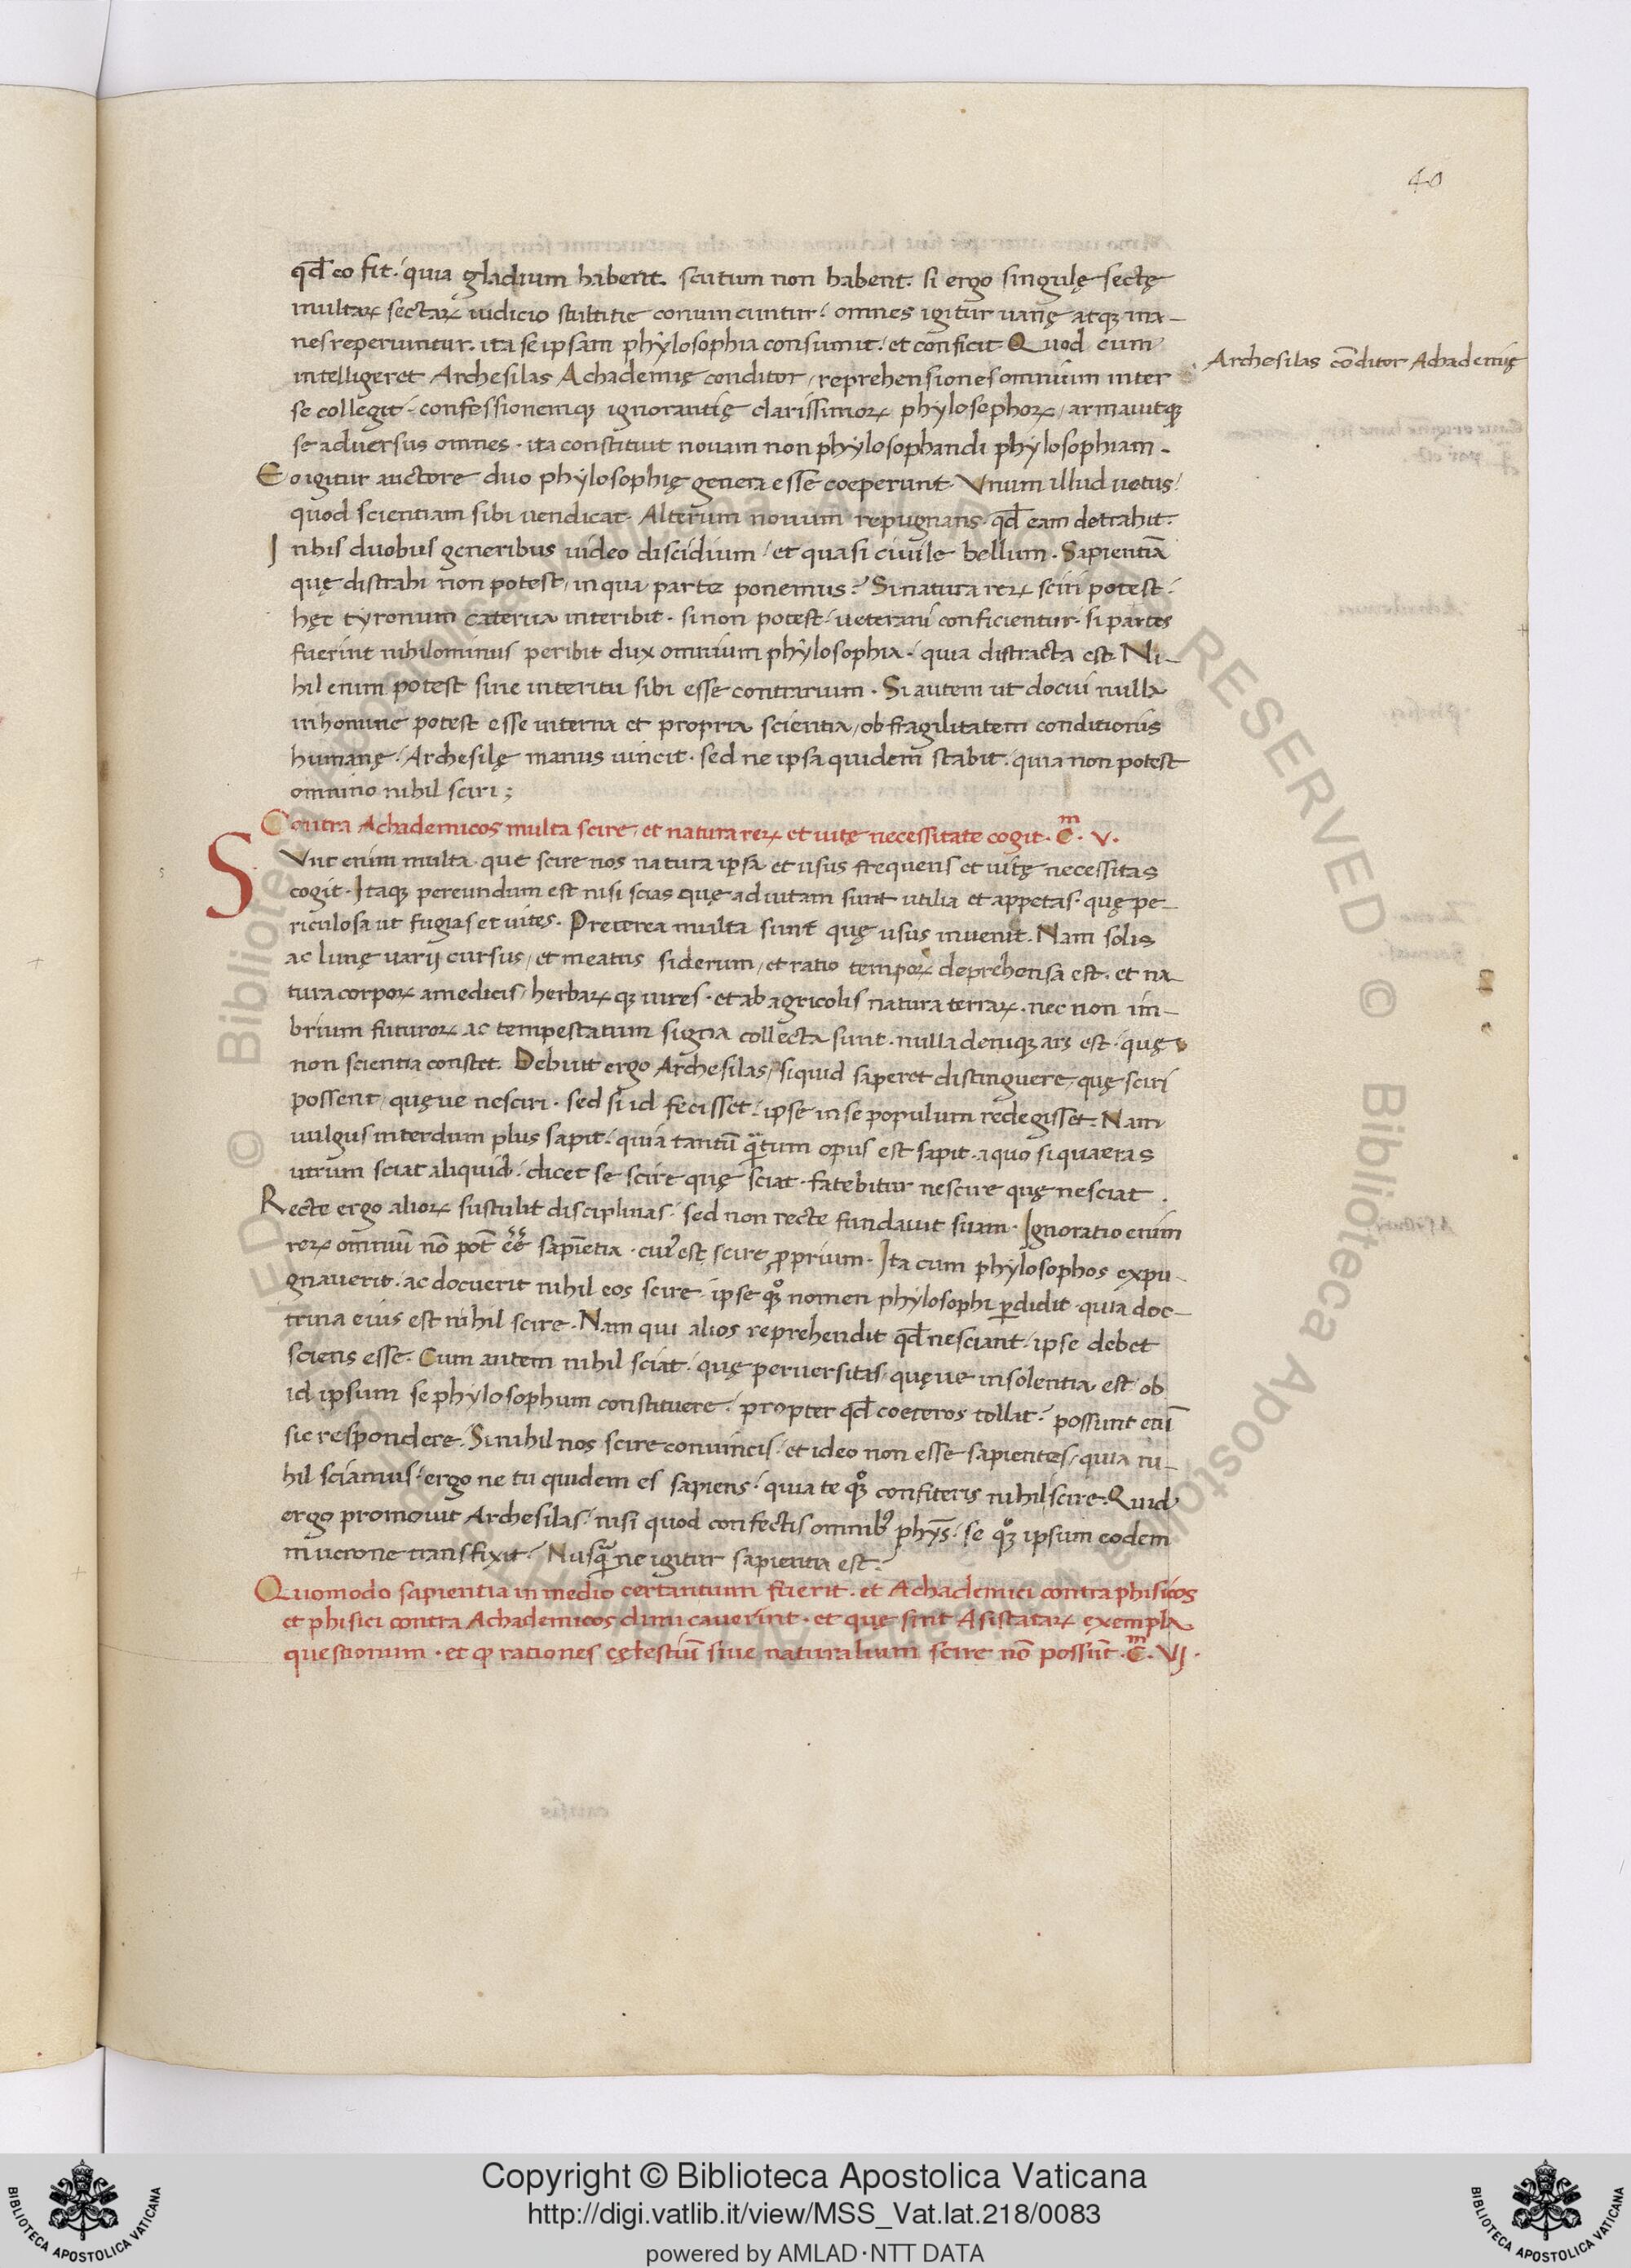 40
qđ eo fit. quia gladium habent. scutum non habent. si ergo singulę sectę
multaꝝ sectaꝝ iudicio stultitie conuincuntur. omnes igitur uanę atqꝫ ina-
nes reperiuntur. ita se ipsam phylosophia consumit. et conficit Quod cum
intelligeret Archesilas Achademię conditor, reprehensiones omnium inter
Archesilas cōditor Achademię
se collegit. confessionemqꝫ ignorantię clarissimoꝝ phylosophoꝝ, armauitqꝫ
se aduersus omnes. ita constituit nouam non phylosophandi phylosophiam.
Eo igitur auctore duo phylosophię genera esse coeperunt. Vnum illud uetus.
quod scientiam sibi uendicat. Alterum nouum repugnans. qđ eam detrahit.
In his duobus generibus uideo discidium. et quasi ciuile bellum. Sapientiā
quę distrahi non potest, in qua parte ponemus? Si natura reꝝ sciri potest.
hęc tyronum caterua interibit. si non potest. ueterani conficientur. si partes
fuerint nihilominus peribit dux omnium phylosophia. quia distracta est. Ni-
hil enim potest sine interitu sibi esse contrarium. Si autem ut docui nulla
in homine potest esse interna et propria scientia, ob fragilitatem conditionis
humanę. Archesilę manus uincit. sed ne ipsa quidem stabit. quia non potest
omnino nihil sciri;
Contra Achademicos multa scire, et natura reꝝ et uitę necessitate cogit. Cᵐ. V.
SVnt enim multa. que scire nos natura ipsa et usus frequens et uitę necessitas
cogit. Itaqꝫ pereundum est nisi scias quę ad uitam sunt utilia et appetas. quę pe-
riculosa ut fugias et uites. Preterea multa sunt quę usus inuenit. Nam solis
ac lunę uarij cursus, et meatus siderum, et ratio tempoꝝ deprehensa est. et na-
tura corpoꝝ a medicis, herbaꝝqꝫ uires. et ab agricolis natura terraꝝ. nec non im-
brium futuroꝝ ac tempestatum signa collecta sunt. nulla deniqꝫ ars est. quę
non scientia constet. Debuit ergo Archesilas, siquid saperet distinguere, quę sciri
possent, quęue nesciri. sed si id fecisset. ipse in se populum redegisset. Nam
uulgus interdum plus sapit. quia tantū quātum opus est sapit. a quo si quaeras
utrum sciat aliquid. dicet se scire quę sciat. fatebitur nescire quę nesciat.
Recte ergo alioꝝ sustulit disciplinas. sed non recte fundauit suam. Ignoratio enim
reꝝ omniū nō pōt eē sapientia. cui est scire ꝓprium. Ita cum phylosophos expu-
gnauerit. ac docuerit nihil eos scire. ipse qꝫ nomen phylosophi ꝑdidit. quia doc-
trina eius est nihil scire. Nam qui alios reprehendit qđ nesciant. ipse debet
sciens esse. Cum autem nihil sciat. quę peruersitas, quęue insolentia est. ob
id ipsum se phylosophum constituere. propter qđ coeteros tollit? possunt enī
sic respondere. Si nihil nos scire conuincis. et ideo non esse sapientes, quia ni-
hil sciamus. ergo ne tu quidem es sapiens. quia te qꝫ confiteris nihil scire. Quid
ergo promouit Archesilas. nisi quod confectis omnibꝰ phȳs. se qꝫ ipsum eodem
mucrone transfixit? Nusquā ne igitur sapientia est?
Quomodo sapientia in medio certantium fuerit. et Achademici contra phisicos
et phisici contra Achademicos dimicauerint. et quę sint Asistataꝝ exempla
questionum. et ꝙ rationes cęlestiū siue naturalium scire nō possūt. Cᵐ. VJ.
Copyright © Biblioteca Apostolica Vaticana
http://digi.vatlib.it/view/MSS_Vat.lat.218/0083
powered by AMLAD·NTT DATA
BIBLIOTECA APOSTOLICA VATICANA
BIBLIOTECA APOSTOLICA VATICANA